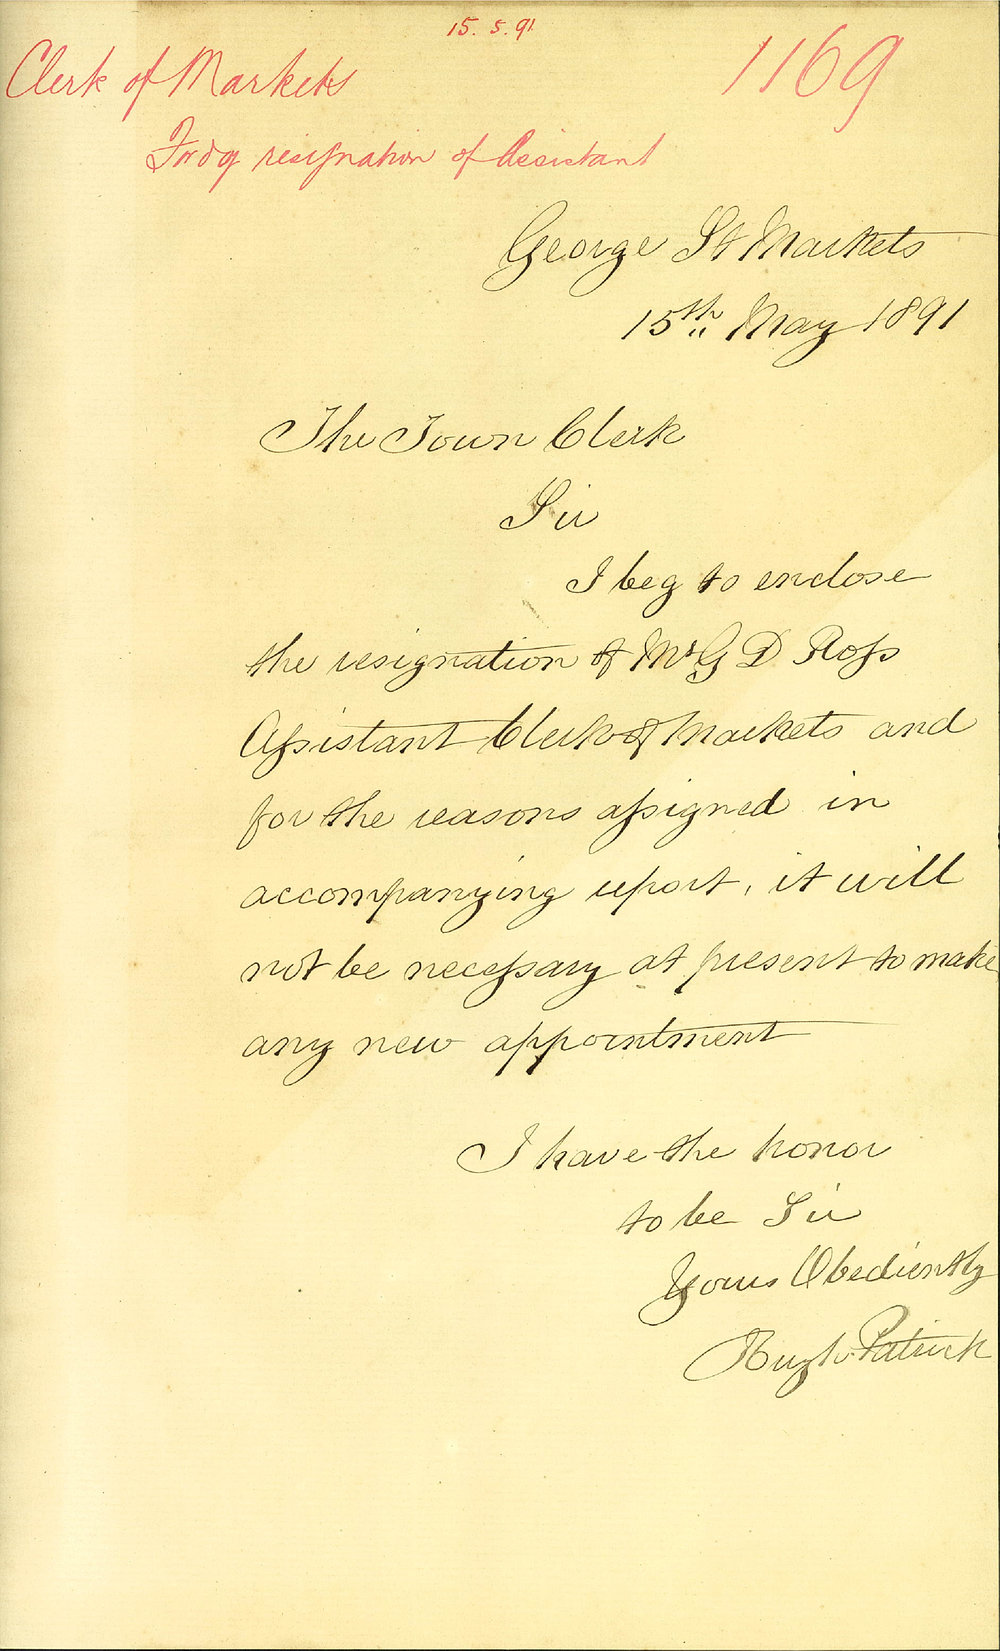 15. 5. 91
1169
Clerk of Markets
Fwdg resignation of Assistant
George St Markets
15th May 1891
The Town Clerk
Sir
I beg to enclose
the resignation of Mr G D Ross
Assistant Clerk of Markets and
for the reasons assigned in
accompanying report, it will
not be necessary at present to make
any new appointment
I have the honor
to be Sir
Yours Obediently
Hugh Patrick